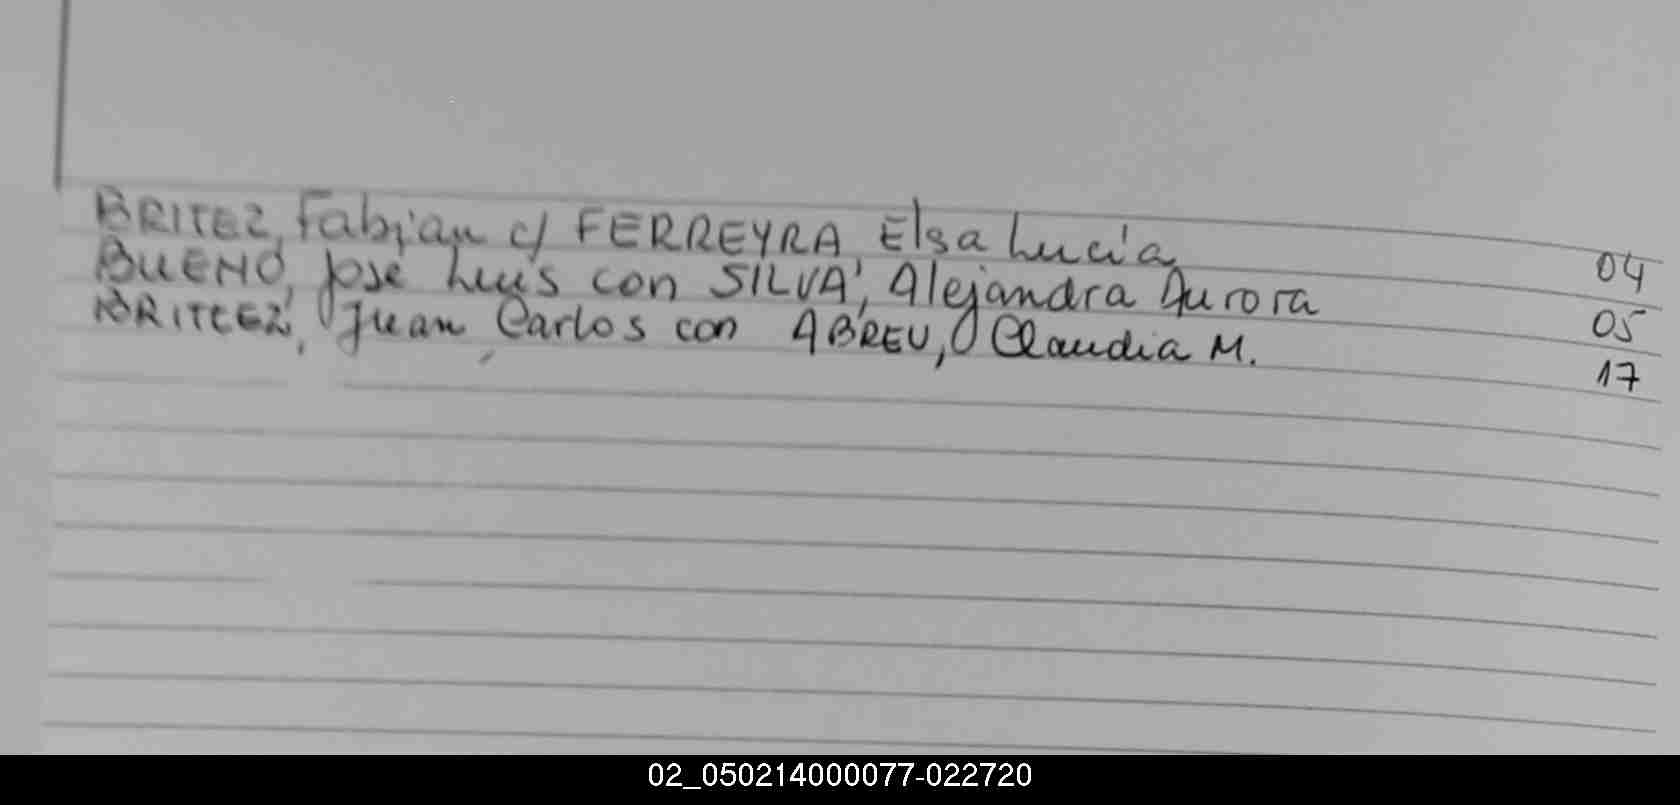 BRITEZ, Fabian c/ FERREYRA, Elsa Lucia 04
BUENO, José Luis con SILVA, Alejandra Aurora 05
BRITEZ, Juan Carlos con ABREU, Claudia M. 17
02_050214000077-022720